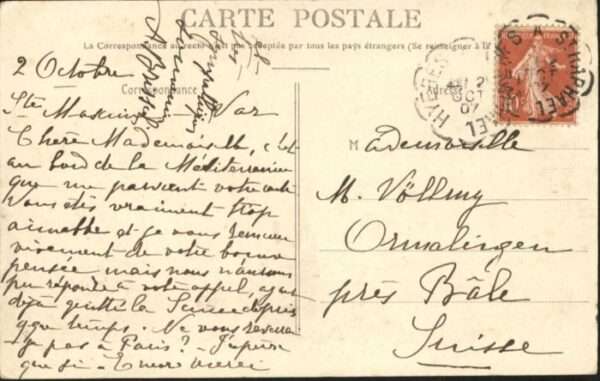 CARTE POSTALE
La Correspondance au recto n'est pas acceptée par tous les pays étrangers (Se renseigner à la
Correspondance
Adresse
2 Octobre
Ste Maxime Var
Chère Mademoiselle, c'est
au bord de la Méditerranée
que me parvient votre carte
Vous êtes vraiment trop
aimable et je vous remercie
vivement de votre bonne
pensée mais nous n'avons
pu répondre à votre appel, ayant
déjà quitté la Suisse depuis
qque temps. Ne vous reverrai
je pas à Paris? J'espère
que si. Encore merci
Mademoiselle
M. Völlmy
Ormalingen
près Bâle
Suisse
HYÈRES A ST RAPHAEL
OCT
07
10